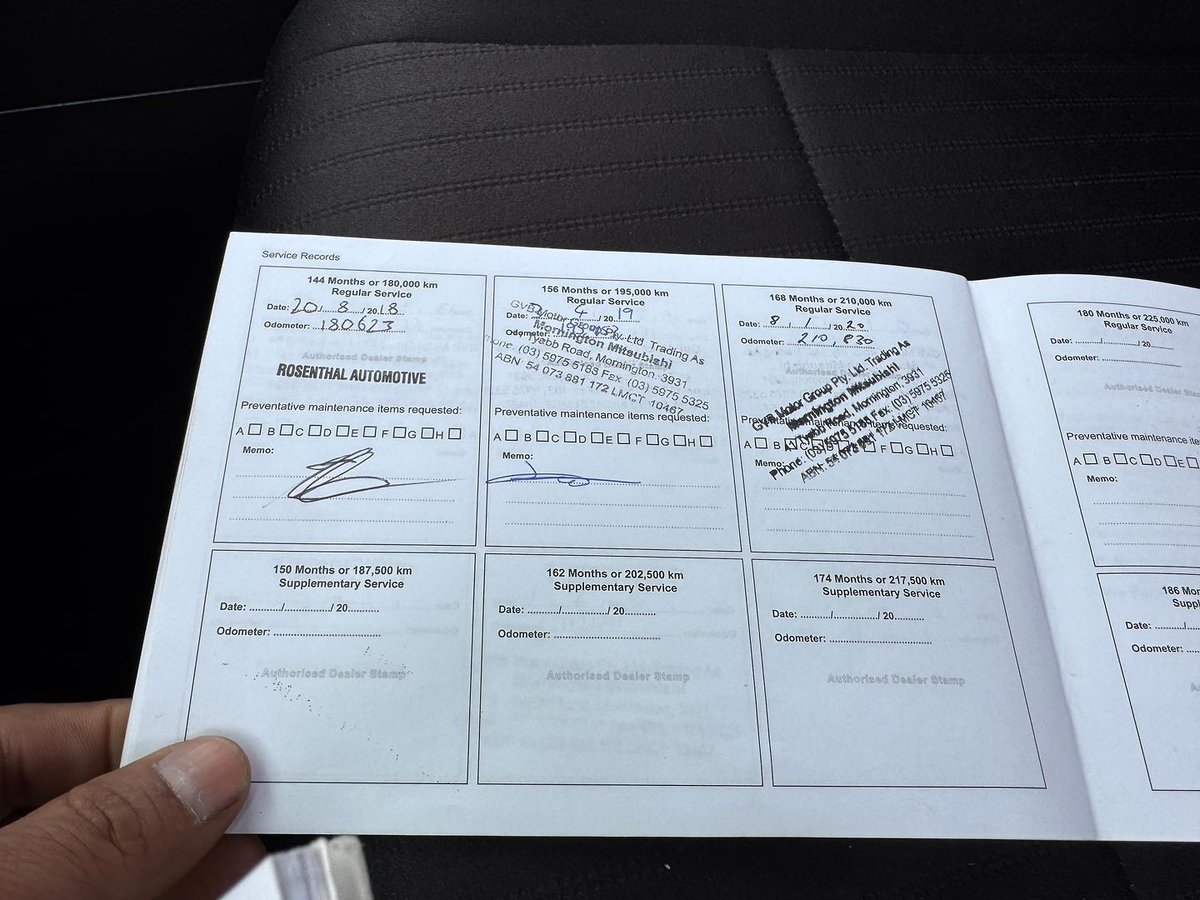 Service Records
144 Months or 180,000 km
Regular Service
Date: 20/8/2018
Odometer: 180623
Authorised Dealer Stamp
ROSENTHAL AUTOMOTIVE
Preventative maintenance items requested:
A B C D E F G H
Memo:
156 Months or 195,000 km
Regular Service
Date: 4/2019
Odometer:
GVB Motor Group Pty. Ltd. Trading As
Mornington Mitsubishi
Tyabb Road, Mornington, 3931
Phone: (03) 5975 5188 Fax: (03) 5975 5325
ABN: 54 073 881 172 LMCT 10467
Preventative maintenance items requested:
A B C D E F G H
Memo:
168 Months or 210,000 km
Regular Service
Date: 8/1/2020
Odometer: 210,830
Authorised Dealer Stamp
GVB Motor Group Pty. Ltd. Trading As
Mornington Mitsubishi
Tyabb Road, Mornington, 3931
Phone: (03) 5975 5188 Fax: (03) 5975 5325
ABN: 54 073 881 172 LMCT 10467
Preventative maintenance items requested:
A B F G H
Memo:
180 Months or 225,000 km
Regular Service
Date: ........./............../ 20
Odometer:
Authorised Dealer
Preventative maintenance
A B C D E
Memo:
150 Months or 187,500 km
Supplementary Service
Date: ........../.............../ 20..........
Odometer: ...............................
Authorised Dealer Stamp
162 Months or 202,500 km
Supplementary Service
Date: ........../.............../ 20..........
Odometer: ...............................
Authorised Dealer Stamp
174 Months or 217,500 km
Supplementary Service
Date: ........../.............../ 20..........
Odometer: ...............................
Authorised Dealer Stamp
186
Date:
Odometer: